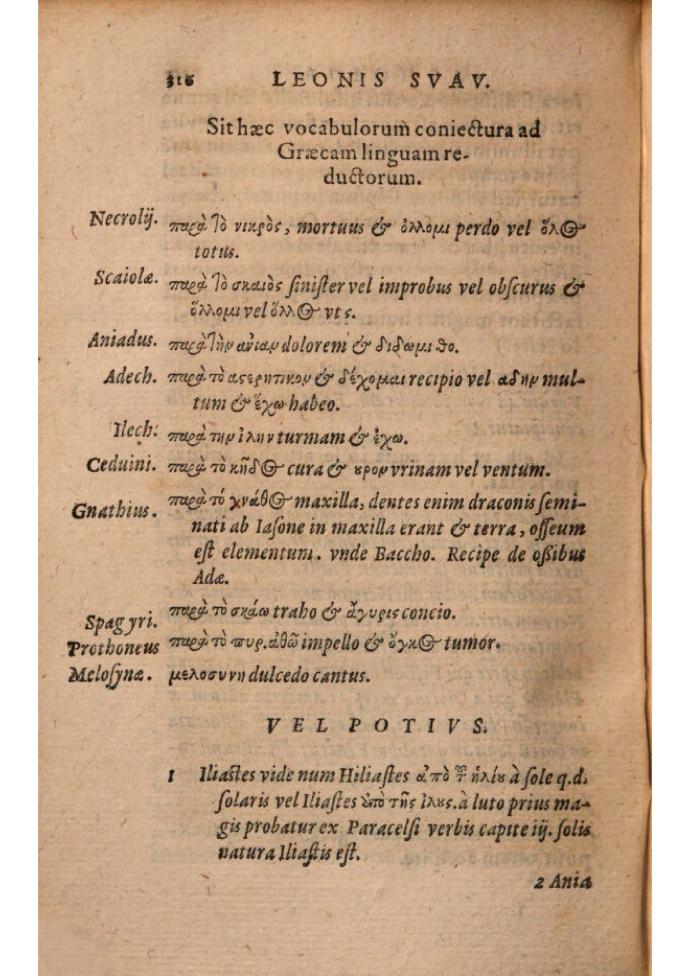 316 LEONIS SVAV.
Sit hæc vocabulorum coniectura ad
Græcam linguam re-
ductorum.
Necrolij. παρὰ τὸ νικρὸς, mortuus & ὀλλομι perdo vel ὅλος
totus.
Scaiolæ. παρὰ τὸ σκαιὸς sinister vel improbus vel obscurus &
ὄλλομι vel ὄλλος vt s.
Aniadus. παρὰ τὴν ἀνίαν dolorem & δίδωμι do.
Adech. παρὰ τὸ αςερητικον & δέχομαι recipio vel αδην mul-
tum & ἔχω habeo.
Ilech: παρὰ την ἰλην turmam & ἔχω.
Ceduini. παρὰ τὸ κῆδος cura & ȣρον vrinam vel ventum.
Gnathius. παρὰ τό γνάθος maxilla, dentes enim draconis semi-
nati ab Iasone in maxilla erant & terra, osseum
est elementum. vnde Baccho. Recipe de oßibus
Adæ.
Spagyri. παρὰ τὸ σπάω traho & ἄγυρις concio.
Prothoneus παρὰ τὸ πυρ. ἀθῶ impello & ὄγκος tumor.
Melosynæ. μελοσυνη dulcedo cantus.
VEL POTIVS.
1 Iliastes vide num Hiliastes ἀπὸ τοῦ ἡλίȣ à sole q.d.
solaris vel Iliastes ὑπὸ τῆς ἰλυς. à luto prius ma-
gis probatur ex Paracelsi verbis capite iij. solis
natura Iliastis est.
2 Ania